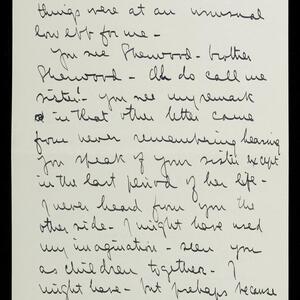 things were at an unusual
low ebb for me -
You see Sherwood - brother
Sherwood - Oh do call me
sister! - you see my remark
in that other letter came
from never remembering hearing
you speak of your sister except
in the last period of her life -
I never heard from you the
other side - I might have used
my imagination - seen you
as children together - I
might have - but perhaps because